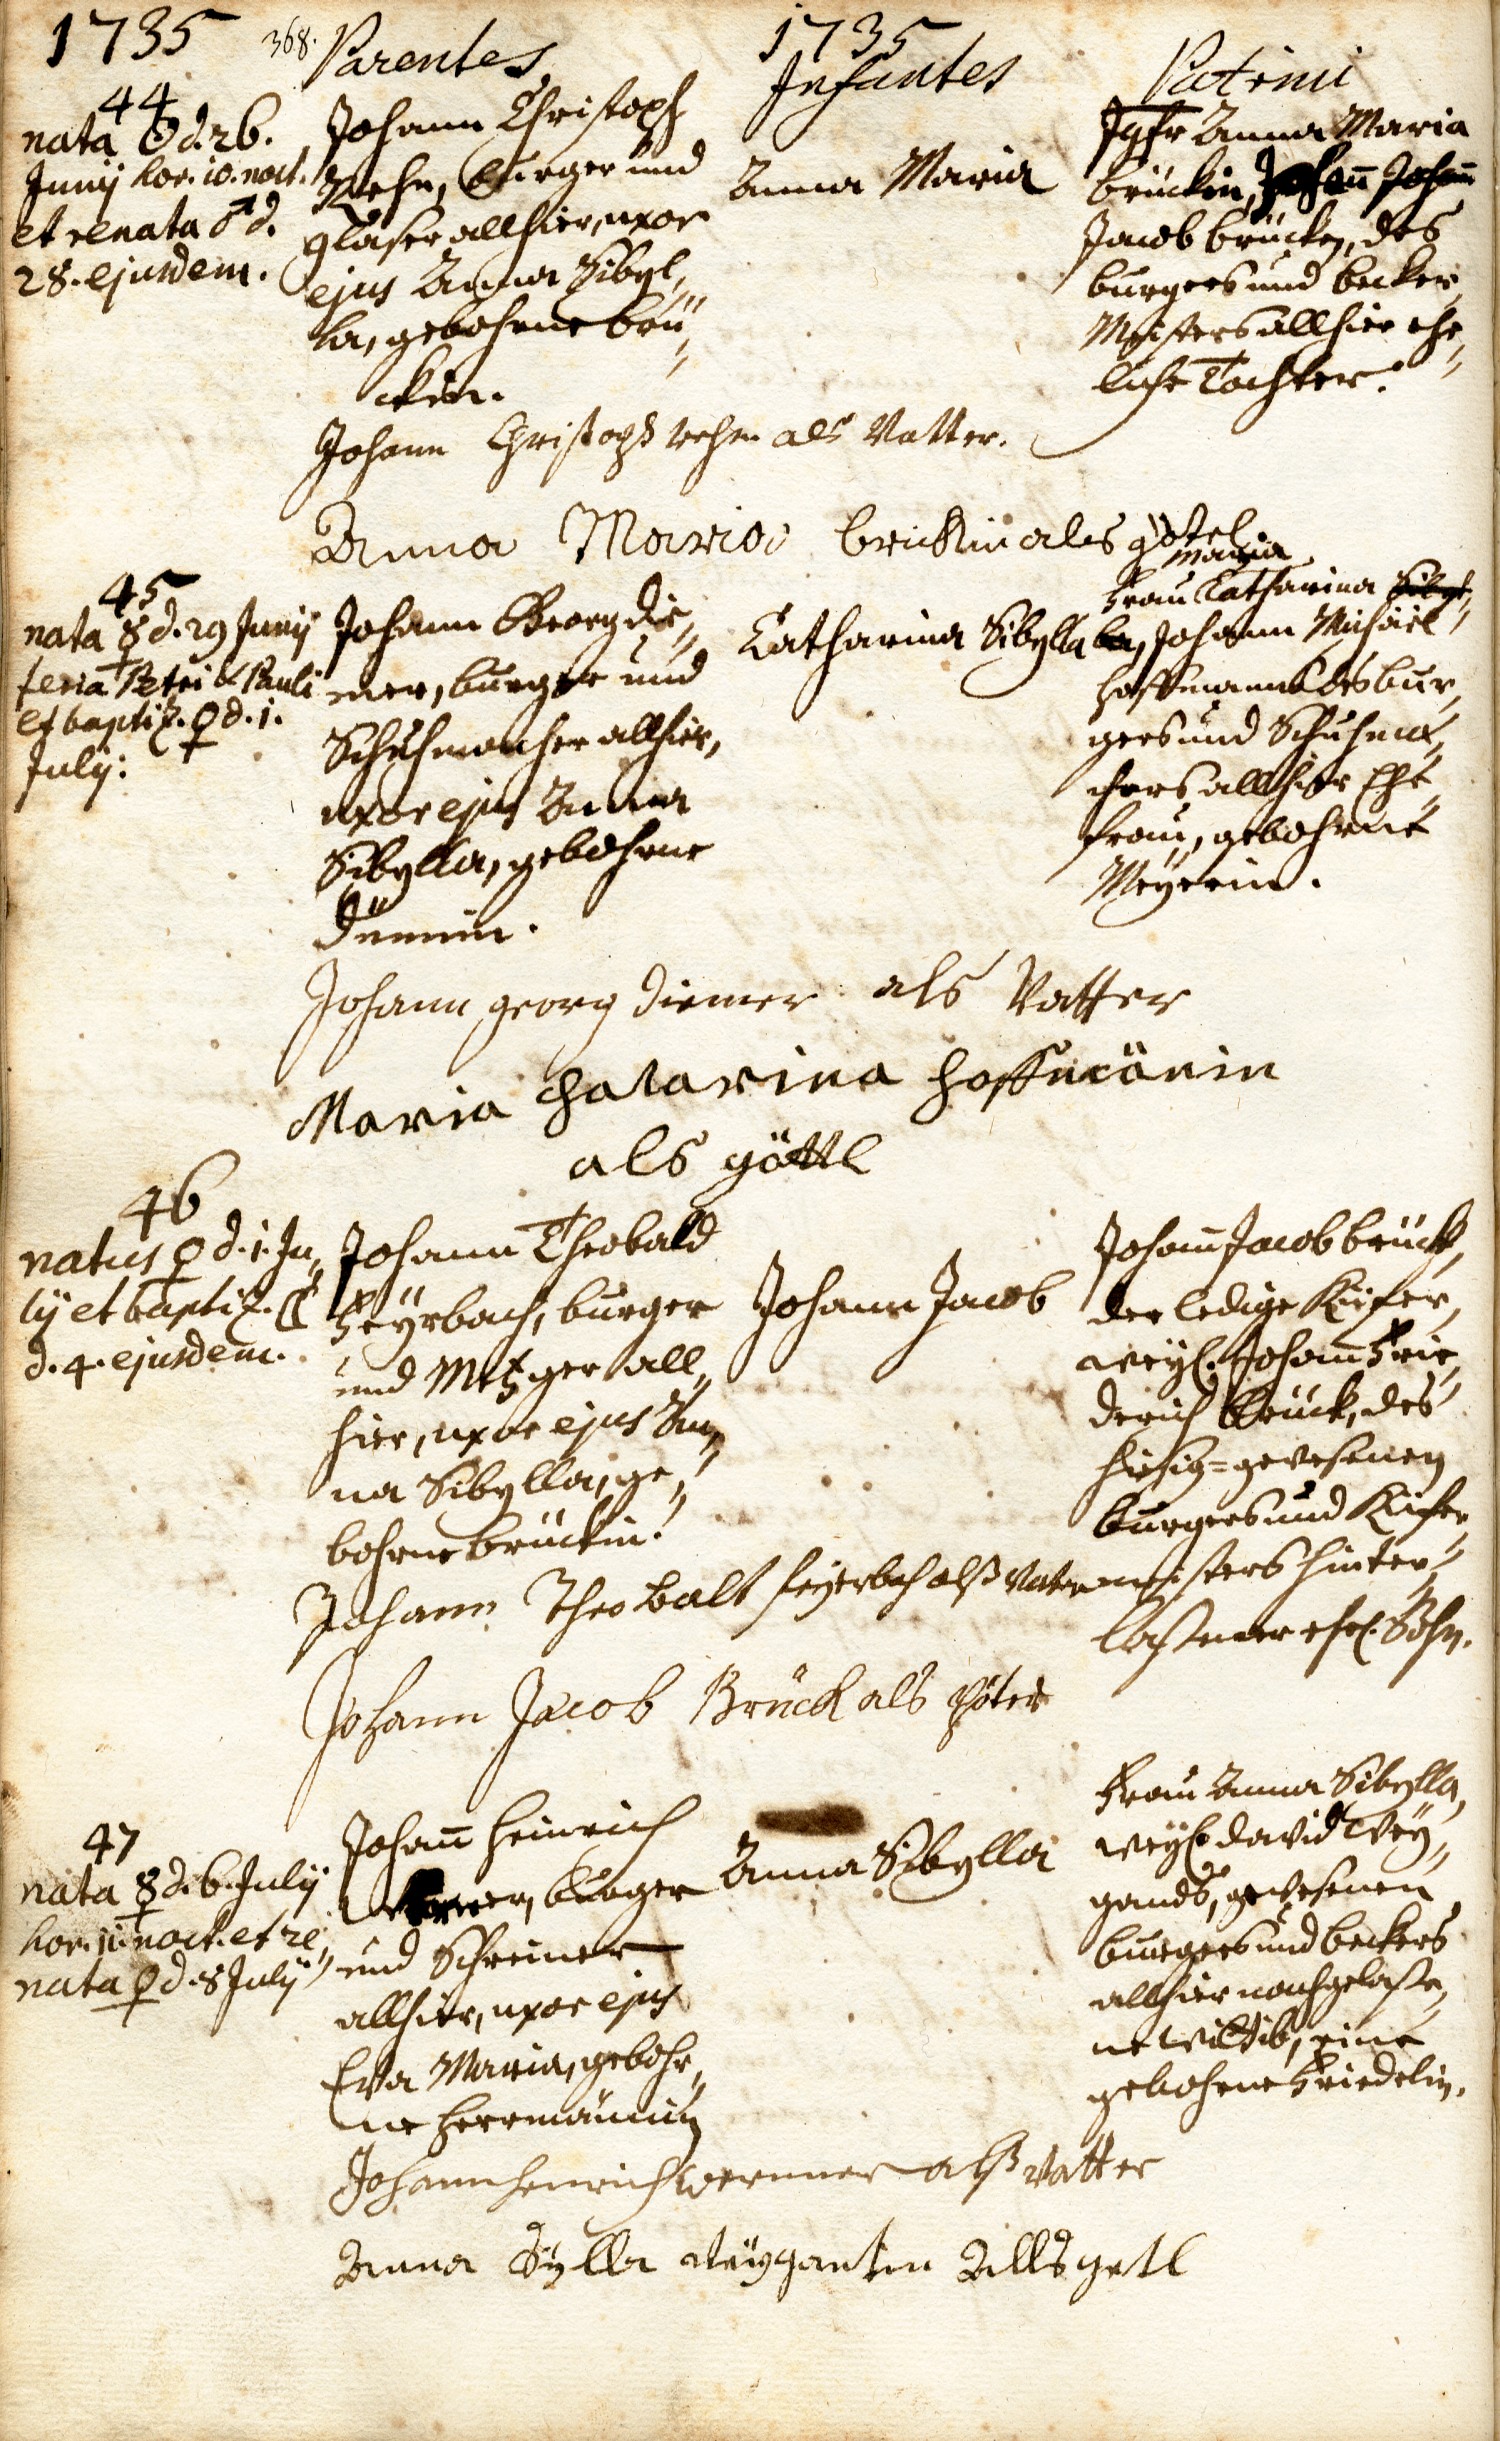 1735
368.
Parentes
1735
Infantes
Patrini
44
nata ☉ d. 26.
Junij hor. 10. noct.
et renata ♂ d.
28. ejusdem.
Johann Christoph
Rehm, burger und
glaser allhier, uxor
ejus Anna Sibyl„
la, gebohrne brü„
ckin.
Anna Maria
Jgfr Anna Maria
brückin, Johann
Jacob brücken, des
burgers und becker„
Meisters allhier ehe„
liche Tochter.
Johann Christoph rehm als Vatter.
Anna Maria brickin als götel
45
nata ☿ d. 29 Junij
feria Petri & Pauli
et baptiz. ♀ d. 1.
July:
Johann Georg die„
mer, burger und
Schuhmacher allhier,
uxor ejus Anna
Sibylla, gebohrne
Catharina Sibylla
Maria
Frau Catharina Sibyl„
la, Johann Michael
Hoffmann des bur„
gers und Schuhma„
chers allhier Ehe„
frau, gebohrne
Meyerin.
Johann georg diemer als Vatter
Maria Chatarina hoffmänin
als göttl
46
natus ♀ d. 1. Ju„
lij et baptiz. ☾
d. 4. ejusdem.
Johann Theobald
Feyrbach, burger
und Metzger all„
hier, uxor ejus An„
na Sibylla, ge„
bohrne brückin.
Johann Jacob
Johann Jacob brück,
der ledige Kiefer,
weyl. Johann Frie„
derich Brück, des
hiesig=gewesenen
burgers und Kiefer„
meisters hinter„
laßener ehel. Sohn.
Johann Theobalt feyerbach alß Vater
Johann Jacob Brück als Pöter
47
nata ☿ d. 6. July
hor. 11. noct. et re„
nata ♀ d. 8 July
Johann Heinrich
burger
und Schreiner
allhier, uxor ejus
Eva Maria, gebohr„
ne Herrmännin
Anna Sibylla
Frau Anna Sibylla,
weyl. david Wey„
gands, gewesenen
burgers und beckers
allhier nachgelaße„
ne Wittib, eine
gebohrne Friedelin.
Johann henrich wermer alß Vatter
Anna Sylla weyganten Alls getl